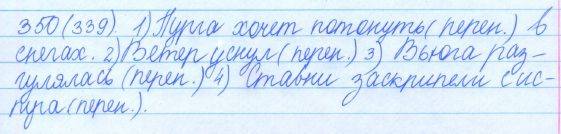 350(339) 1) Пурга хочет потонуть(перен.) в
снегах. 2) Ветер уснул(перен.) 3) Вьюга раз-
гулялась (перен.) 4) Ставни заскрипели с ис-
пуга(перен.).